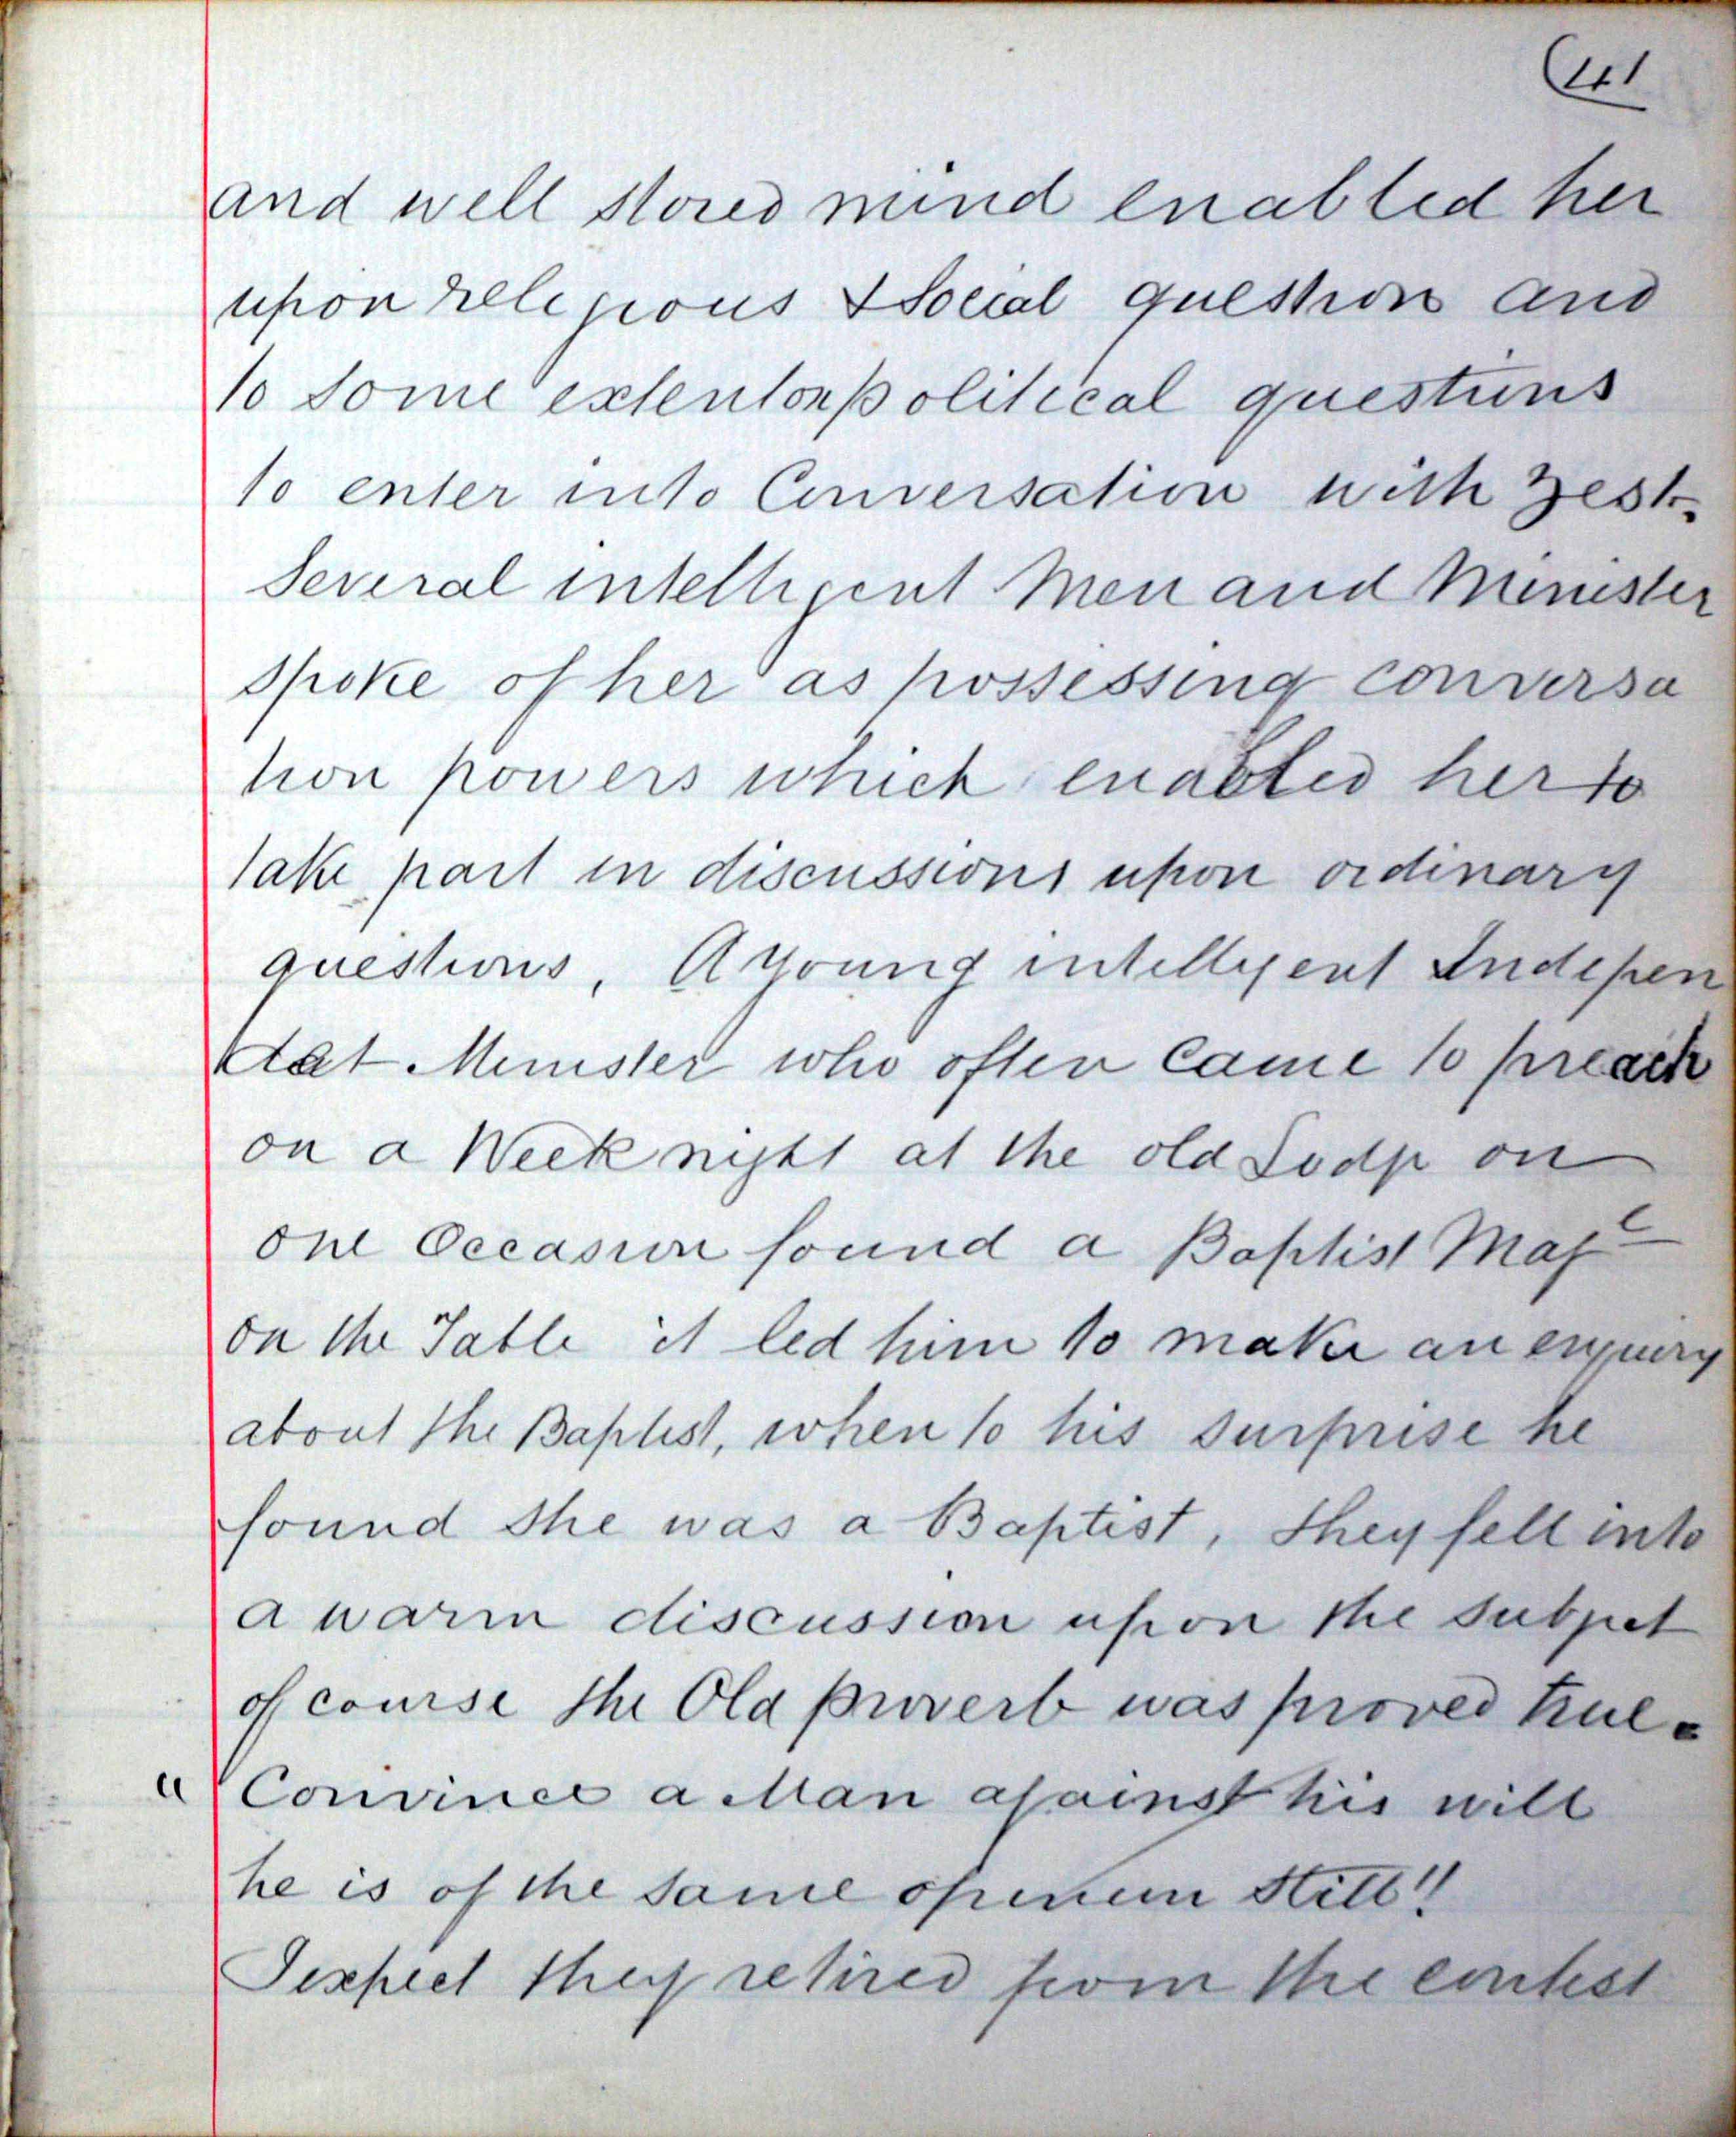 (41
and well stored mind enabled her
upon religious & Social question and
to some extent on political questions
to enter into Conversation with zest.
Several intelligent Men and Minister
spoke of her as possessing conversa
tion powers which enabled her to
take part in discussions upon ordinary
questions, A young intelligent Indepen
dat Minister who often came to preach
on a Week night at the old Lodge on
one Occasion found a Baptist Mage
on the Table it led him to make an enquiry
about the Baptist, when to his surprise he
found she was a Baptist, they fell into
a warm discussion upon the subject
of course the Old proverb was proved true.
" Convince a Man against his will
he is of the same opinion still"!
I expect they retired from the contest